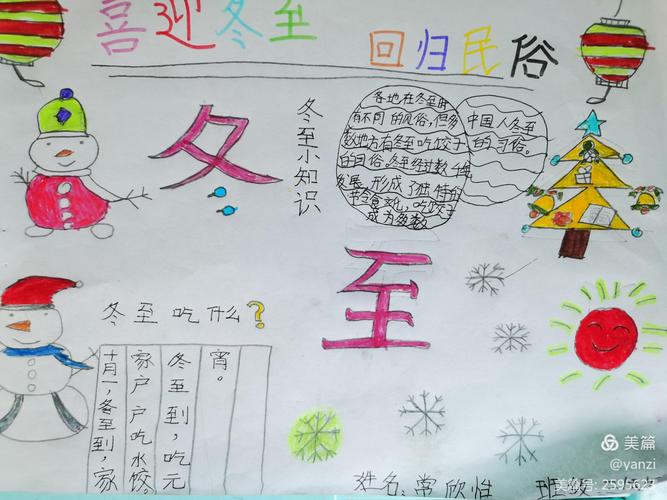 喜迎冬至
回归民俗
冬
至
冬至小知识
各地在冬至时
有不同的风俗，但多
数地方有冬至吃饺子
的习俗。冬至经过数千年
发展，形成了独特的
节令食文化，吃饺子
成为多数
中国人冬至
的习俗。
冬至吃什么？
十月一，冬至到，家
家户户吃水饺。
冬至到，吃元
宵。
姓名：常欣
班级
美篇
@yanzi
美篇号: 2595623